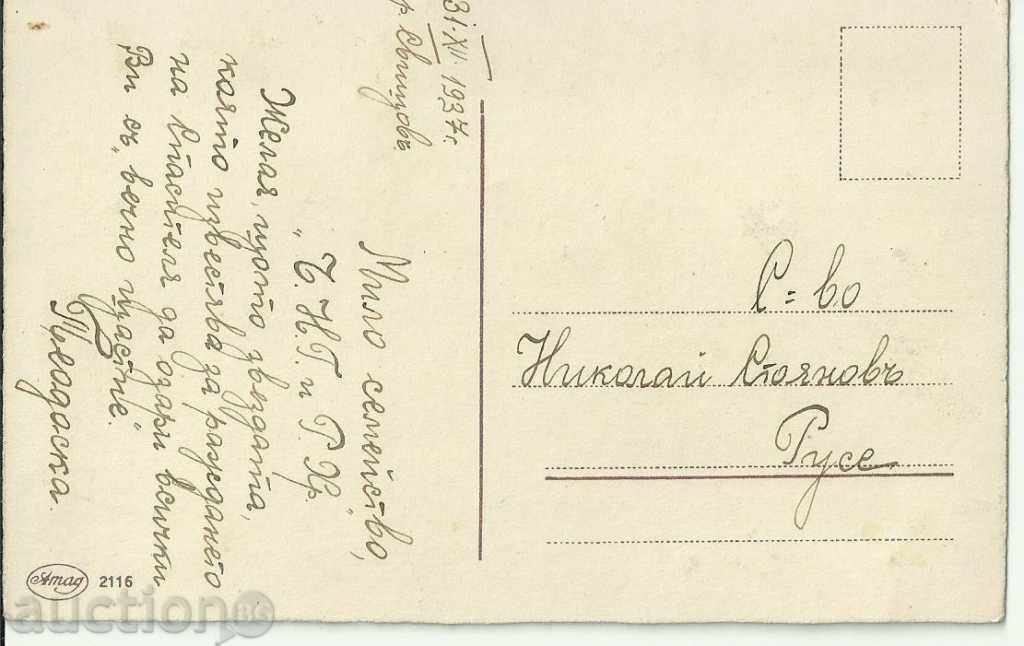 31.XII.1937г.
гр. Свищовъ.
Мило семейство,
„Ч.Н.Г. и Р.Хр.“
Желая, щото звездата,
която известява за раждането
на Спасителя да озари всички
Ви съ „вечно щастие“.
С=во
Николай Стояновъ
Русе
Amag 2116
auction BG